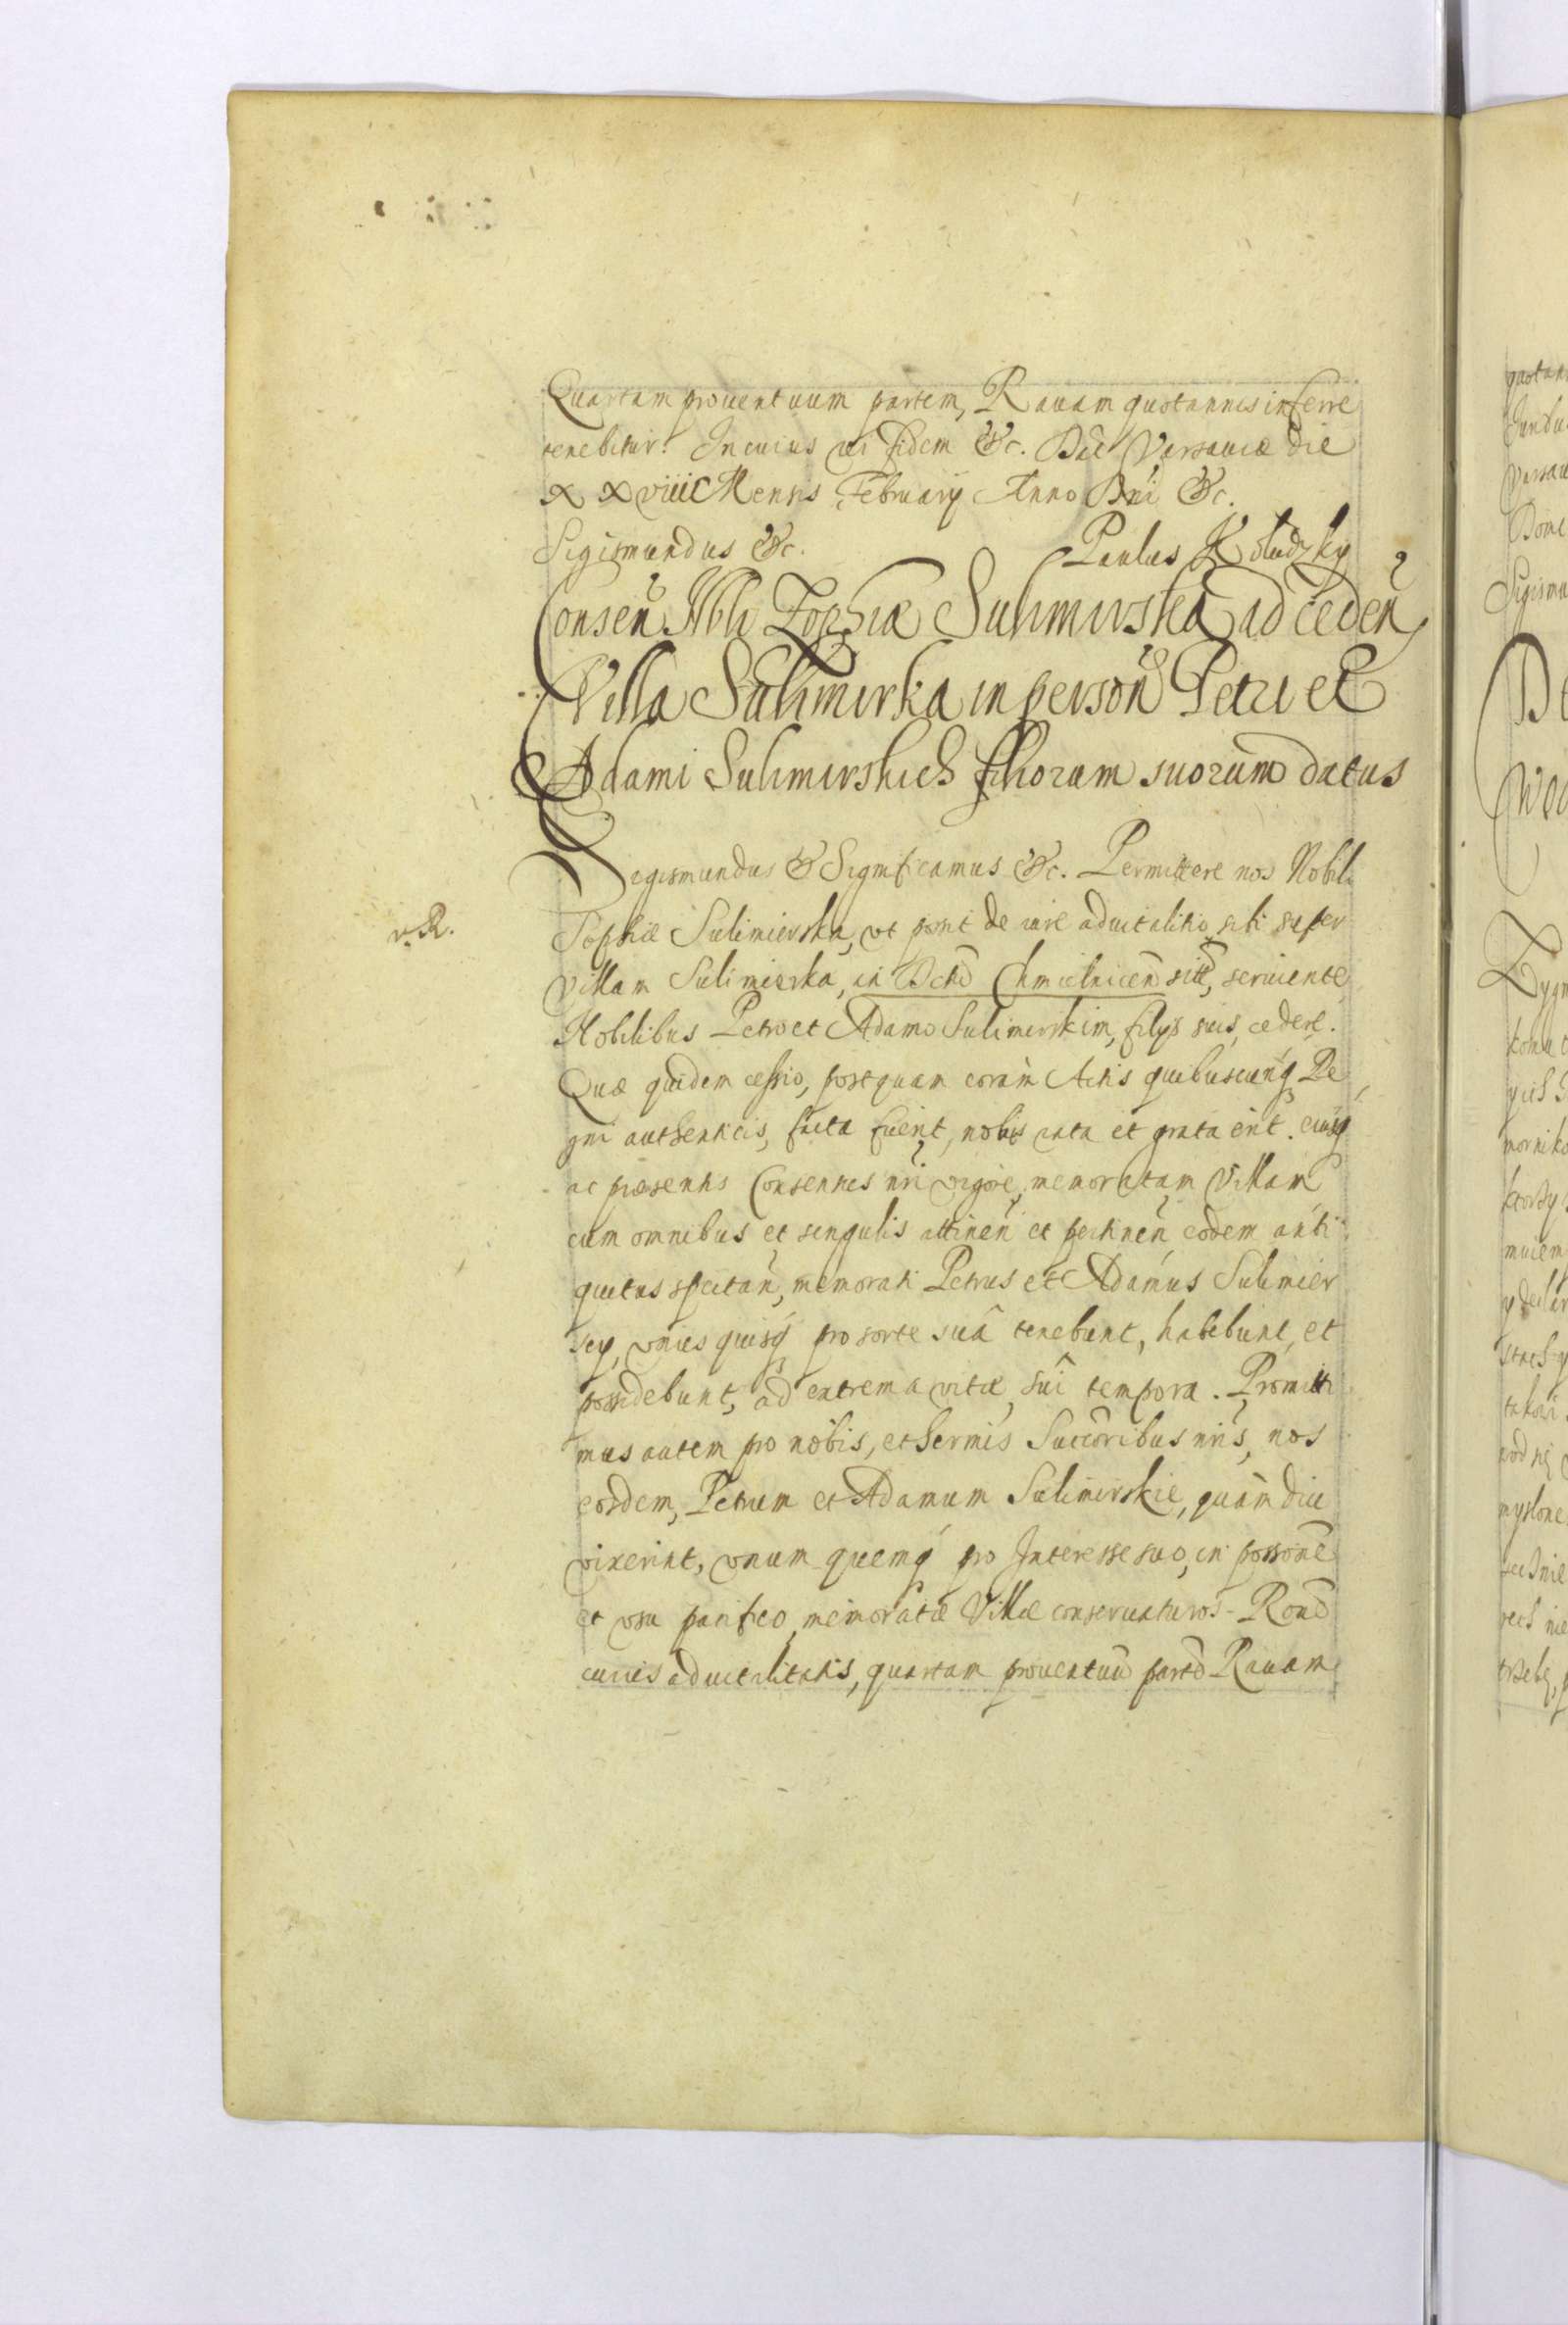 Quartam prouentuum partem, Rauam quotannis inferre
tenebitur. In cuius rei fidem &c. Dat Varsauiæ die
XXviii Mensis February Anno Dni &c.
Sigismundus &c. Paulus Kołudzky
Consen Nbli Zophiæ Sulimirska ad ceden
Villa Sulimirka in person Petri et
Adami Sulimirskich filiorum suorum datus
Sigismundus & Significamus &c. Permittere nos Nobili
v. R.
Sophiæ Sulimierska, vt possit de iure aduitalitio sibi super
Villam Sulimierka, in Chmielnicen sitt, seruiente
Nobilibus Petro et Adamo Sulimirskim, filys suis, cedere.
Quæ quidem cessio, postquam coram Actis quibuscunq Re
gni authenticis, facta fuerit, nobis rata et grata erit. cuiusq
ac præsentis Consensus nri vigore, memoratam Villam
cum omnibus et singulis attinen et pertinen eodem anti
quitus spectan, memorati Petrus et Adamus Sulimier
scy, vnus quisq pro sorte suâ tenebunt, habebunt, et
possidebunt, ad extrema vitæ, sui tempora. Promitti
mus autem pro nobis, et Sermis Succoribus nris, nos
eosdem, Petrum et Adamum Sulimirskie, quàm diu
vixerint, vnum quemq pro Interesse suo, in possone
et vsu pacifico memoratæ Villæ conseruaturos.
cuius aduitalitatis, quartam prouentuu parte Rauam